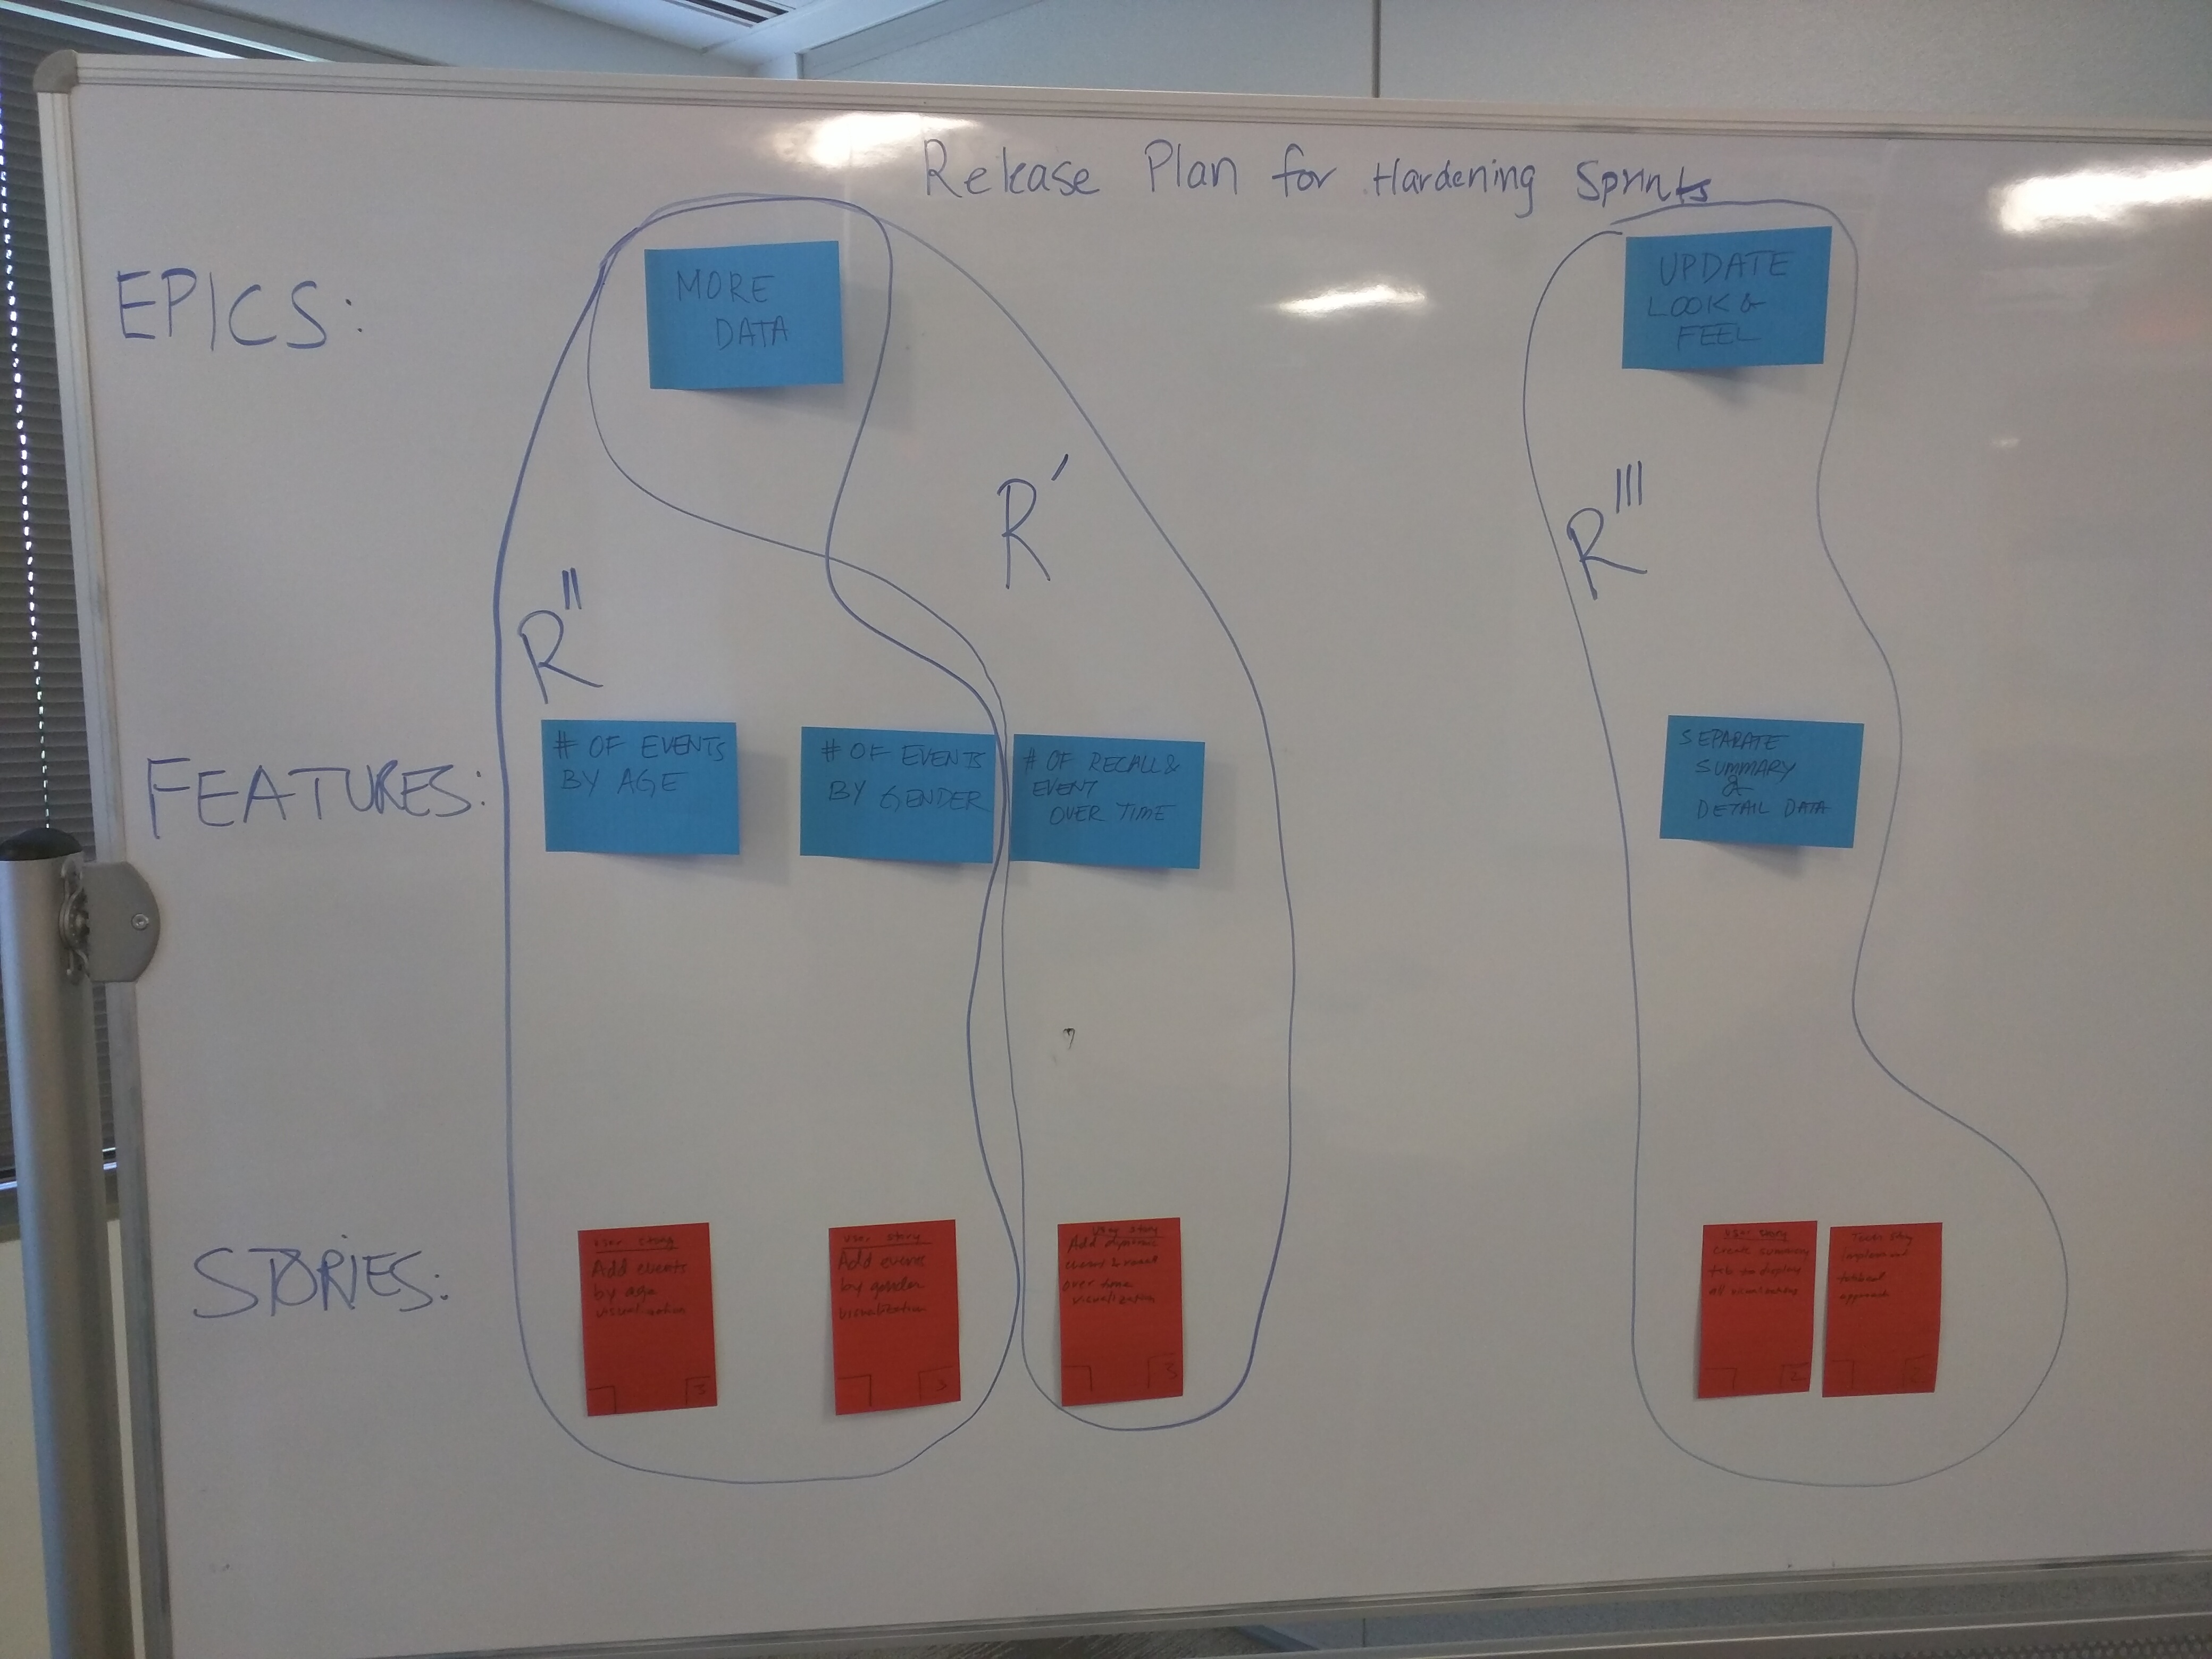 Release Plan for Hardening Sprints
EPICS:
MORE
DATA
UPDATE
LOOK &
FEEL
R'
R''
R'''
FEATURES:
# OF EVENTS
BY AGE
# OF EVENTS
BY GENDER
# OF RECALL &
EVENT
OVER TIME
SEPARATE
SUMMARY
&
DETAIL DATA
STORIES:
User Story
Add events
by age
visualization
3
User Story
Add events
by gender
visualization
3
User Story
Add
over time
visualization
3
User Story
Create summary
tab to display
all
2
Tech Story
implement
approach
2